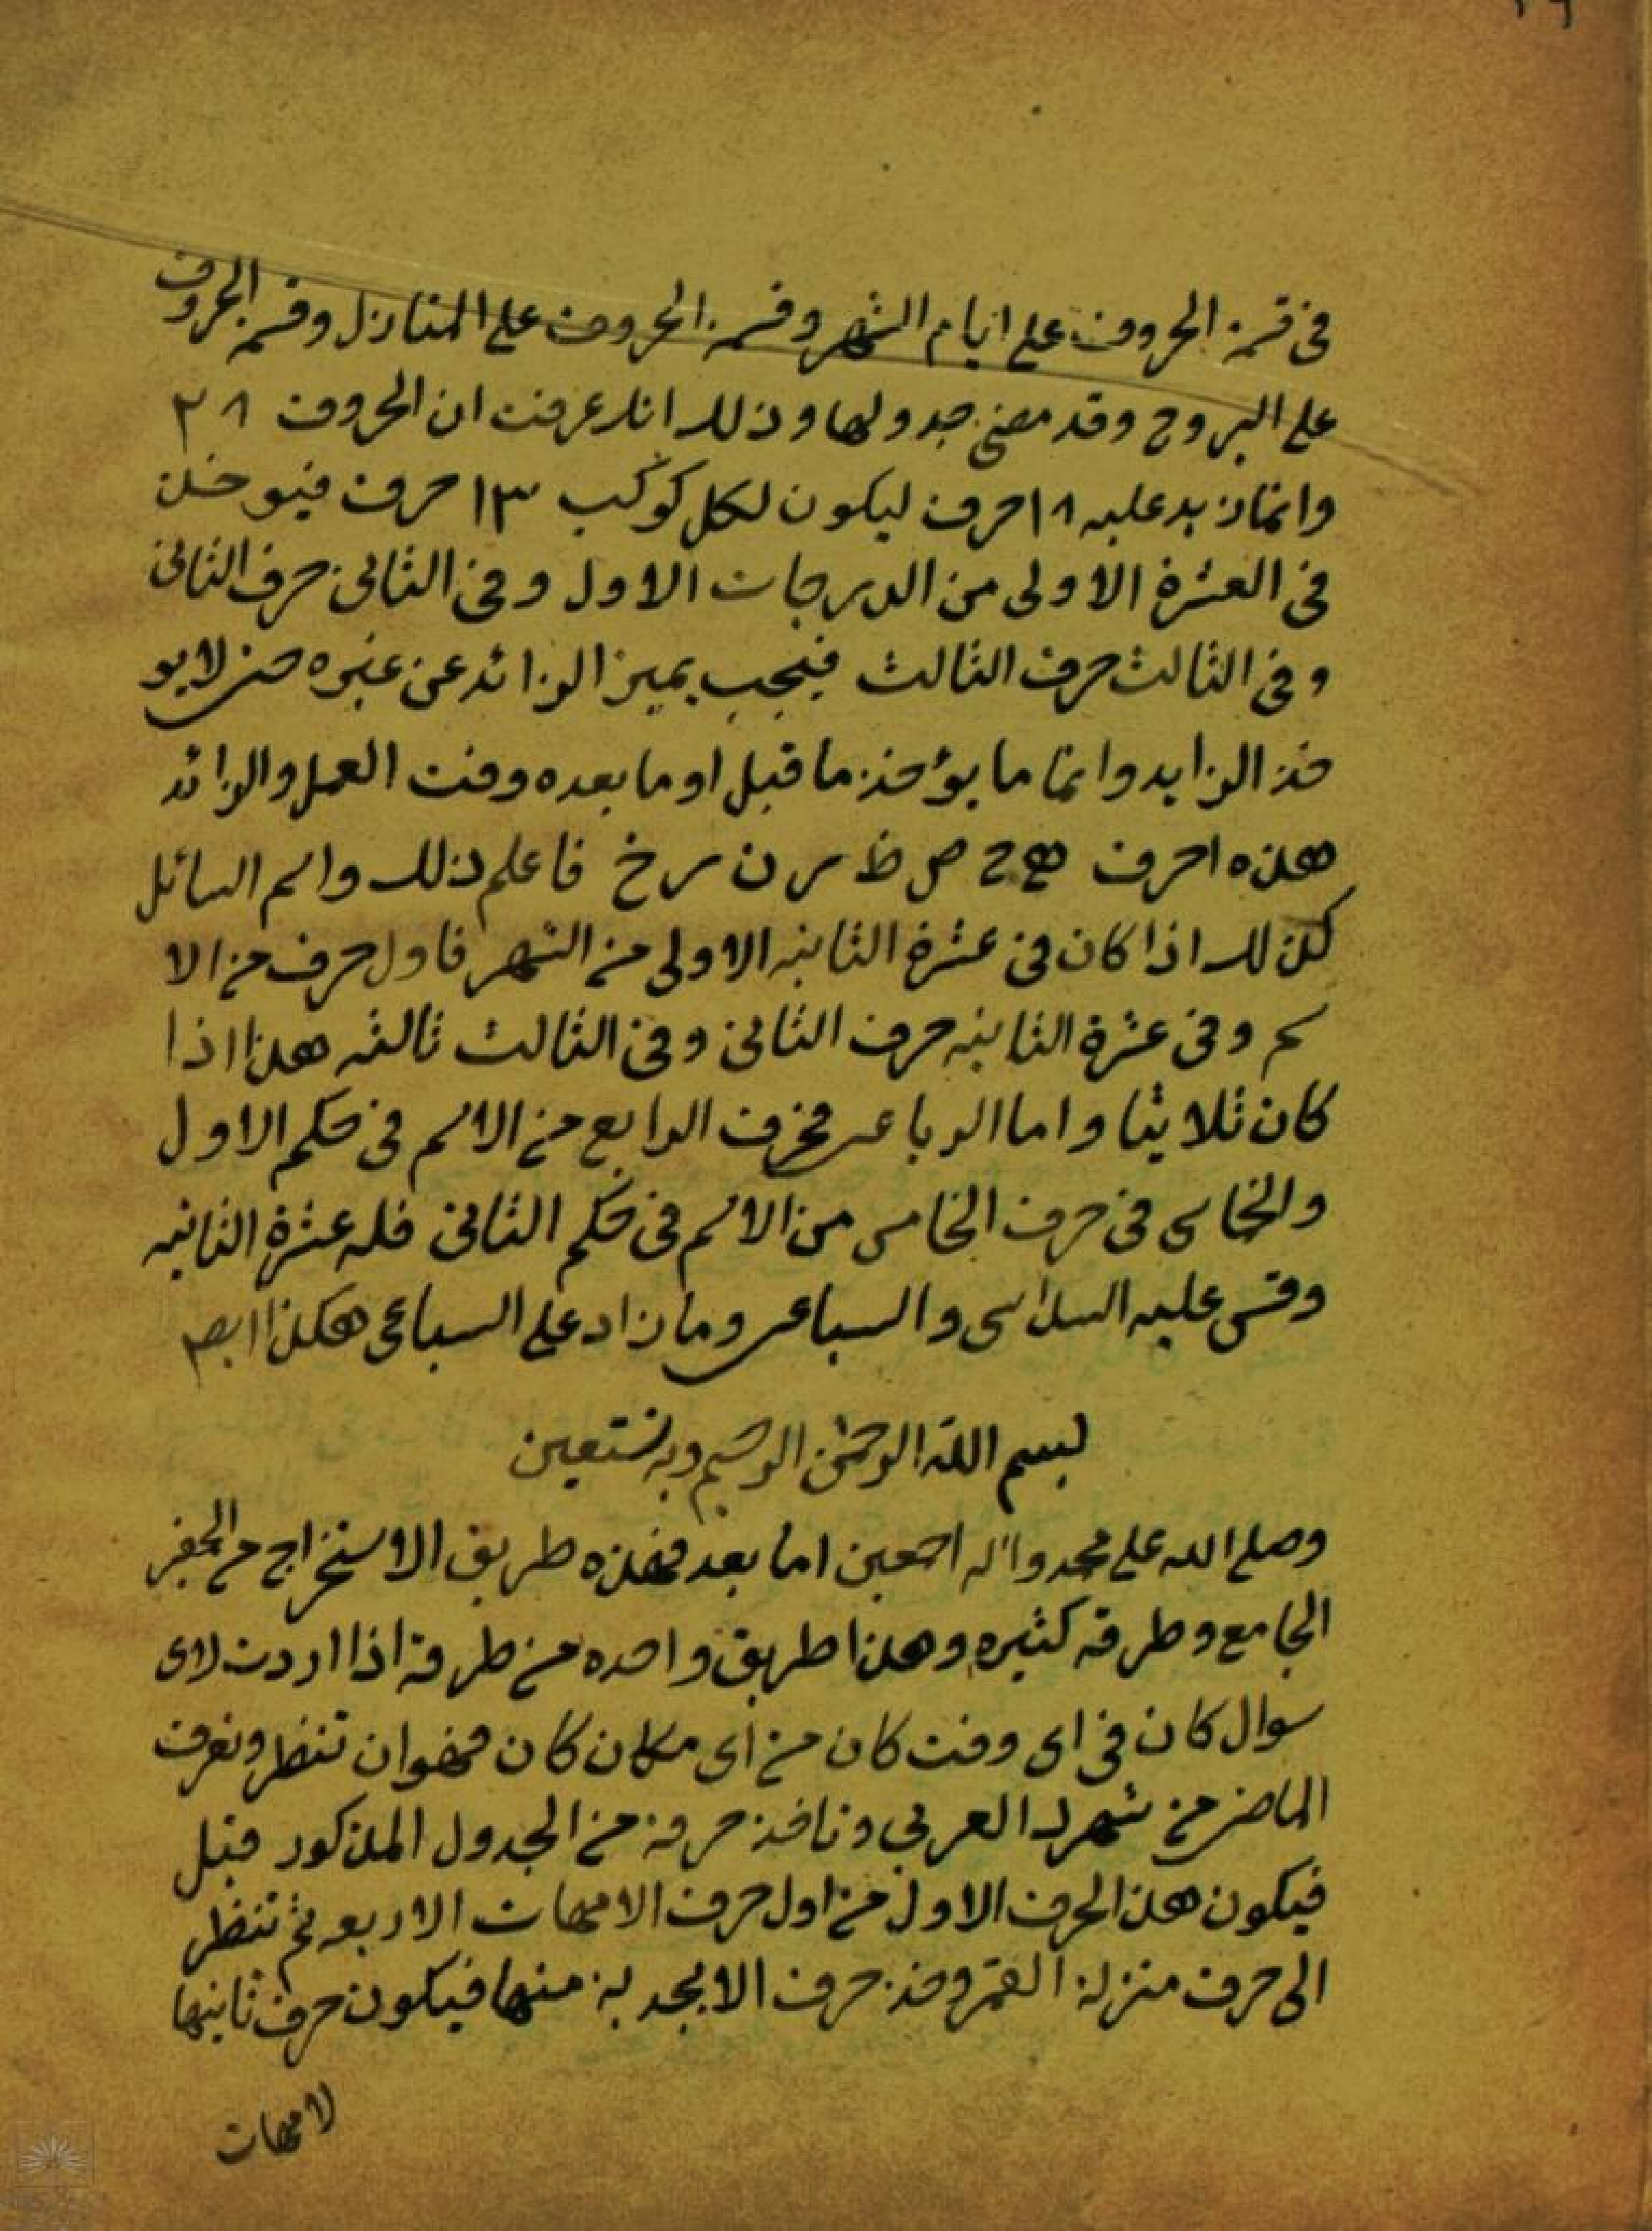 فى قسمة الحروف على ايام الشهر وقسمة الحروف على المنازل وقسمة الحروف
على البروج وقد مضى جدولها وذلك انك عرفت ان الحروف ٢٨
وانما زيد عليه ١٨ حرف ليكون لكل كوكب ١٣ حرف فيوخذ
فى العشرة الاولى من الدرجات الاول وفى الثانى حرف الثانى
وفى الثالث حرف الثالث فيجب تميز الزائد عن غيره حتى لايو
خذ الزايد وانما ما يؤخذ ما قبل او ما بعده وقت العمل والزائد
هذه احرف ح ص ظ س ن س خ فاعلم ذلك واسم السائل
كذلك اذا كان فى عشرة الثانيه الاولى من الشهر فاول حرف من الا
سم وفى عشرة الثانيه حرف الثانى وفى الثالث ثالثه هذا اذا
كان ثلاثيا واما الرباعى فحرف الرابع من الاسم فى حكم الاول
والخماسى فى حرف الخامس من الاسم فى حكم الثانى فله عشرة الثانيه
وقس عليه السداسى والسباعى وما زاد على السباعى هكذا ايضا
بسم الله الرحمن الرحيم وبه نستعين
وصلى الله على محمد واله اجمعين اما بعد فهذه طريق الاستخراج من الجفر
الجامع وطرقه كثيره وهذا طريق واحده من طرقه اذا اردت لاى
سوال كان فى اى وقت كان من اى مكان كان فهو ان تنظر وتعرف
الماضى من شهرك العربي وتاخذ حرفه من الجدول المذكور قبل
فيكون هذا الحرف الاول من اول حرف الامهات الاربعه ثم تنظر
الى حرف منزلة القمر وخذ حرف الابجدية منها فيكون حرف ثانيها
لامهات